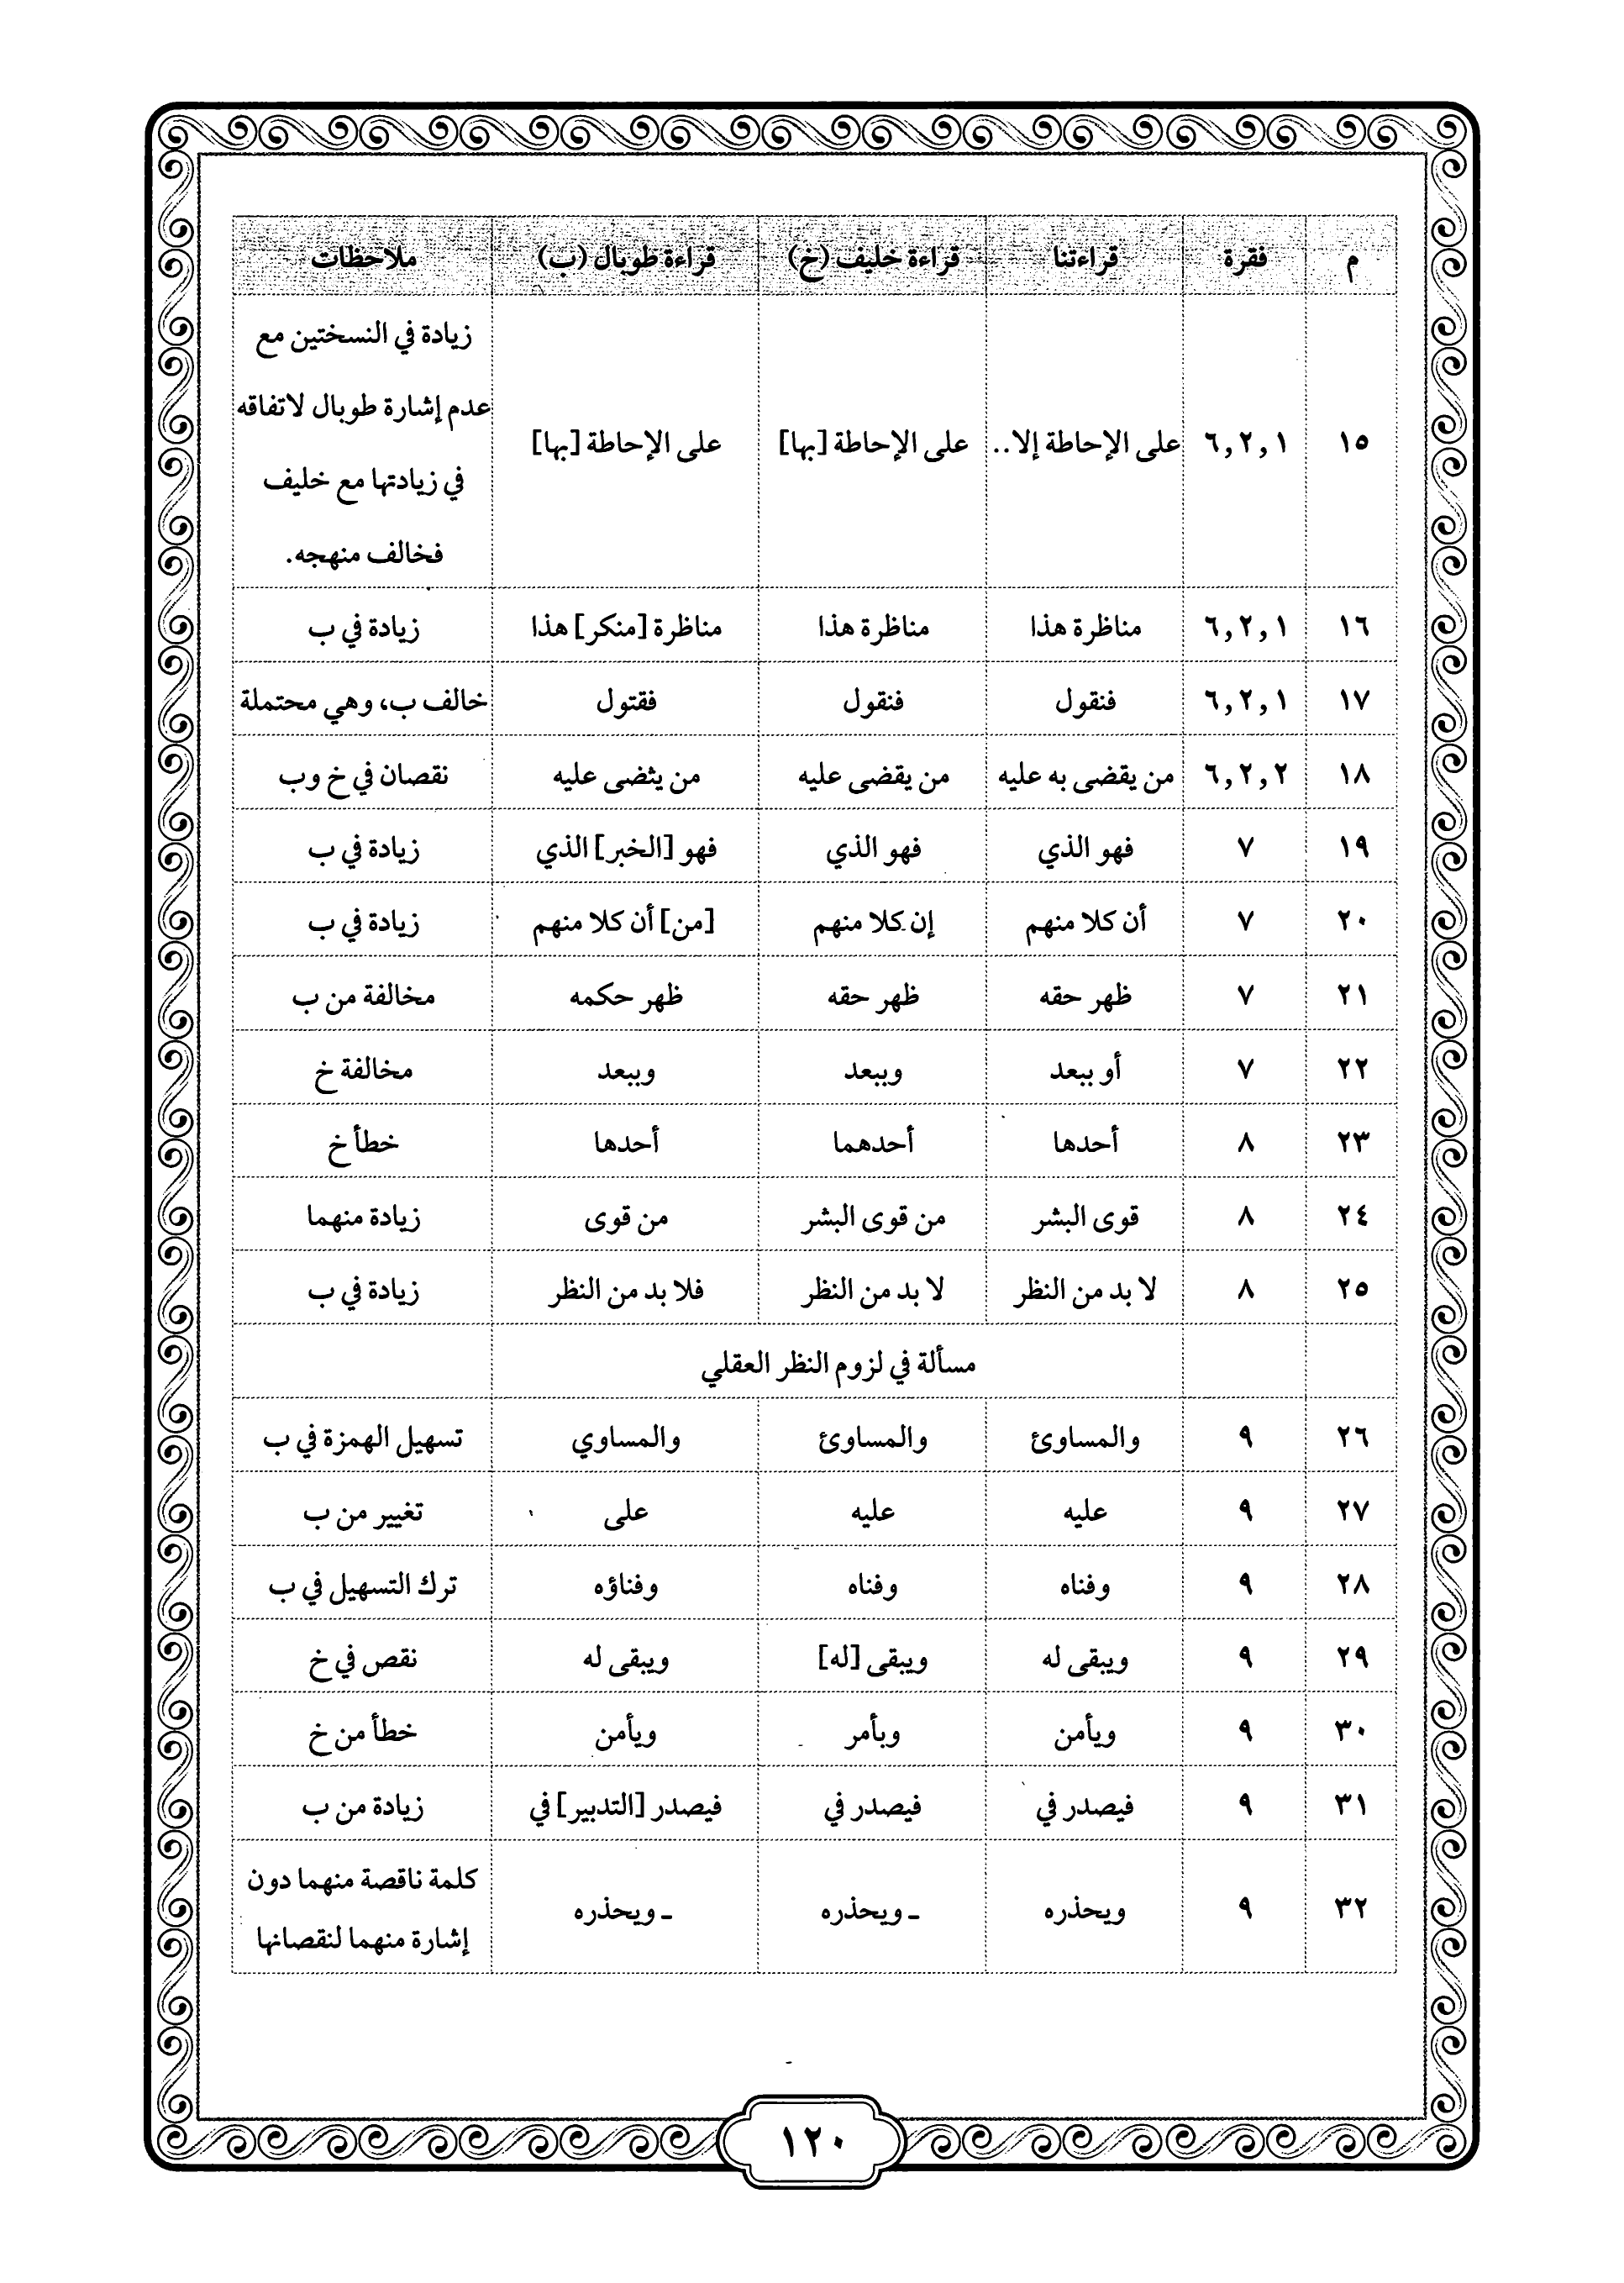 م فقرة قراءتنا قراءة خليف (خ) قراءة طوبال (ب) ملاحظات
١٥ ٦,٢,١ على الإحاطة إلا.. على الإحاطة [بها] على الإحاطة [بها] زيادة في النسختين مع
عدم إشارة طوبال لاتفاقه
في زيادتها مع خليف
فخالف منهجه.
١٦ ٦,٢,١ مناظرة هذا مناظرة هذا مناظرة [منكر] هذا زيادة في ب
١٧ ٦,٢,١ فنقول فنقول فقتول خالف ب، وهي محتملة
١٨ ٦,٢,٢ من يقضى به عليه من يقضى عليه من يثضى عليه نقصان في خ وب
١٩ ٧ فهو الذي فهو الذي فهو [الخبر] الذي زيادة في ب
٢٠ ٧ أن كلا منهم إن كلا منهم [من] أن كلا منهم زيادة في ب
٢١ ٧ ظهر حقه ظهر حقه ظهر حكمه مخالفة من ب
٢٢ ٧ أو ببعد وببعد وببعد مخالفة خ
٢٣ ٨ أحدها أحدهما أحدها خطأ خ
٢٤ ٨ قوى البشر من قوى البشر من قوى زيادة منهما
٢٥ ٨ لا بد من النظر لا بد من النظر فلا بد من النظر زيادة في ب
مسألة في لزوم النظر العقلي
٢٦ ٩ والمساوئ والمساوئ والمساوي تسهيل الهمزة في ب
٢٧ ٩ عليه عليه على تغيير من ب
٢٨ ٩ وفناه وفناه وفناؤه ترك التسهيل في ب
٢٩ ٩ ويبقى له ويبقى [له] ويبقى له نقص في خ
٣٠ ٩ ويأمن وبأمر ويأمن خطأ من خ
٣١ ٩ فيصدر في فيصدر في فيصدر [التدبير] في زيادة من ب
٣٢ ٩ ويحذره ـ ويحذره ـ ويحذره كلمة ناقصة منهما دون
إشارة منهما لنقصانها
١٢٠